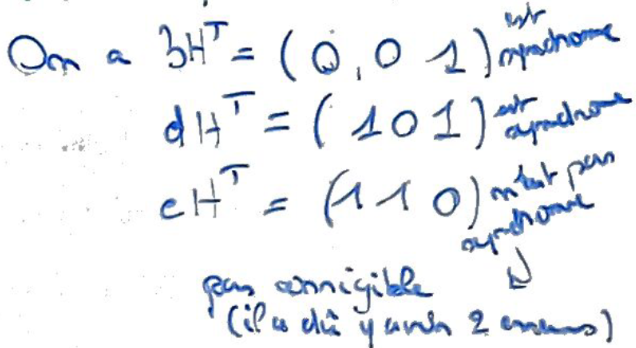 On a bHᵀ = (0, 0 1) est syndrome
dHᵀ = (1 0 1) est syndrome
eHᵀ = (1 1 0) n'est pas syndrome
pas corrigible
(il a dû y avoir 2 erreurs)